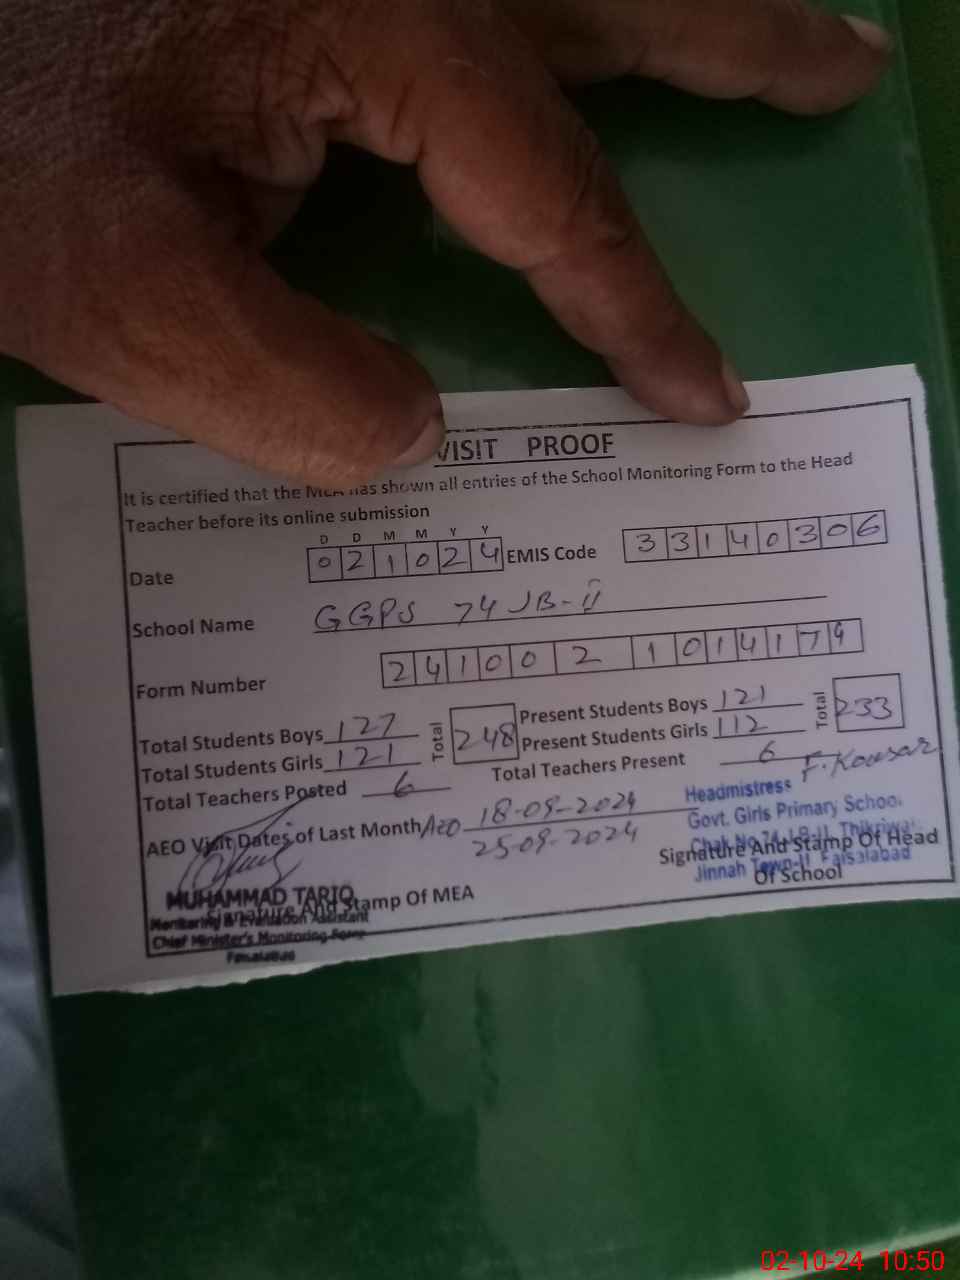 VISIT PROOF
It is certified that the MEA has shown all entries of the School Monitoring Form to the Head
Teacher before its online submission
D D M M Y Y
Date 0 2 1 0 2 4 EMIS Code 3 3 1 4 0 3 0 6
School Name GGPS 74 JB-II
Form Number 2 4 1 0 0 2 1 0 1 4 1 7 9
Total Students Boys 127 Total 248 Present Students Boys 121 Total 233
Total Students Girls 121 Present Students Girls 112
Total Teachers Posted 6 Total Teachers Present 6
F. Kousar
AEO Visit Dates of Last Month AEO 18-09-2024
25-09-2024
Headmistress
Govt. Girls Primary School
Chak No.74 J.B-II, Thikriwala
Jinnah Town-II Faisalabad
Signature And Stamp Of Head
Of School
MUHAMMAD TARIQ
Signature And Stamp Of MEA
Monitoring & Evaluation Assistant
Chief Minister's Monitoring Force
Faisalabad
02-10-24 10:50